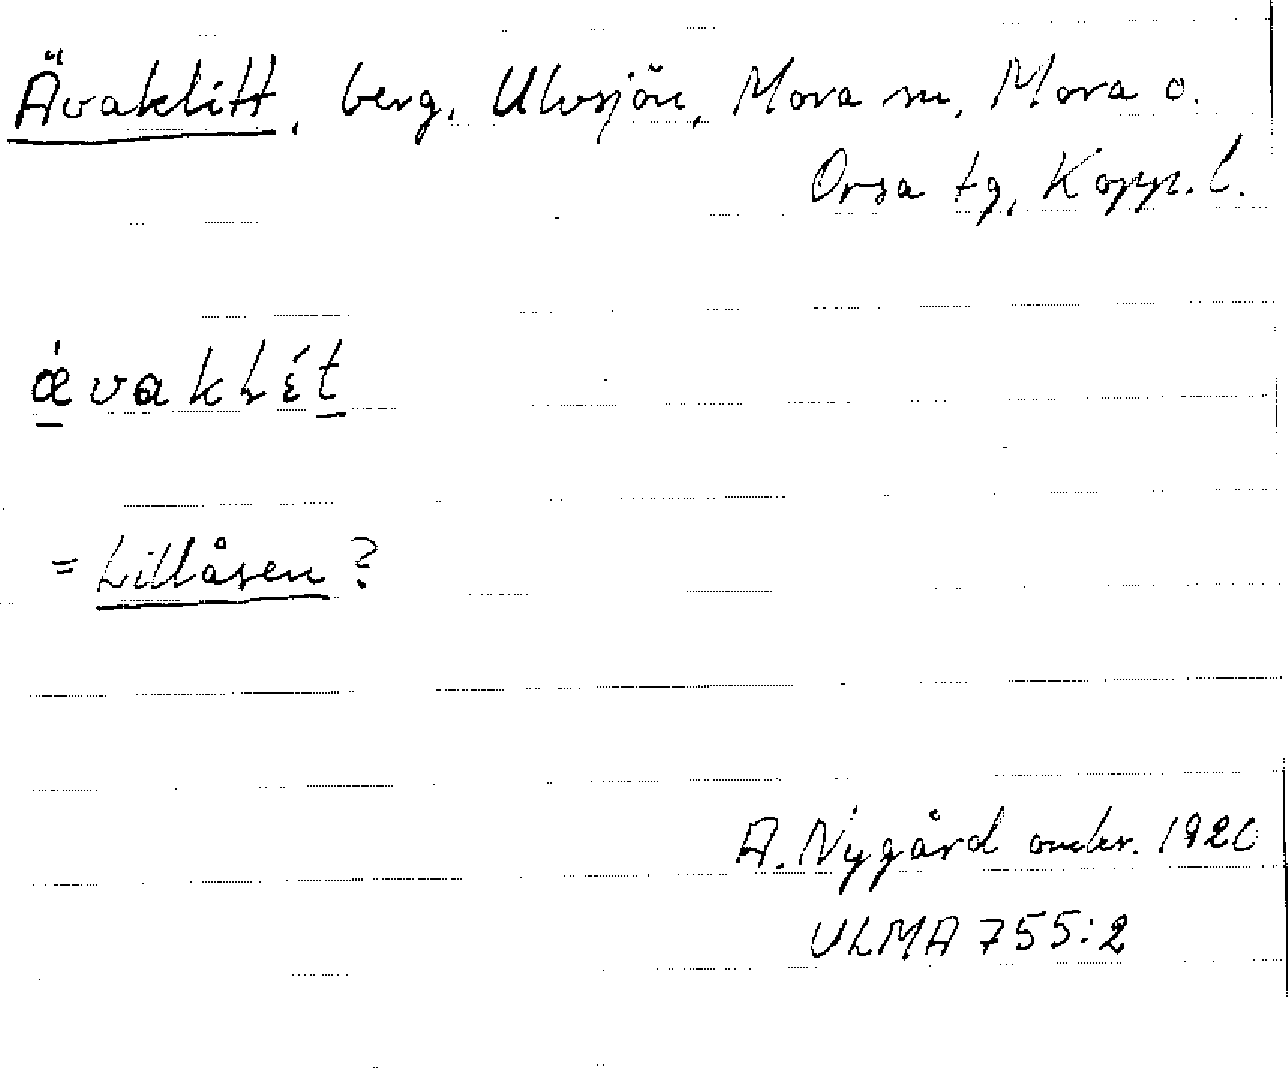 Ävaklitt, berg, Ulvsjön, Mora sn, Mora o.
Orsa tg, Kopp. l.
ǽvaklét
= Lillåsen?
A. Nygård omkr. 1920
ULMA 755:2